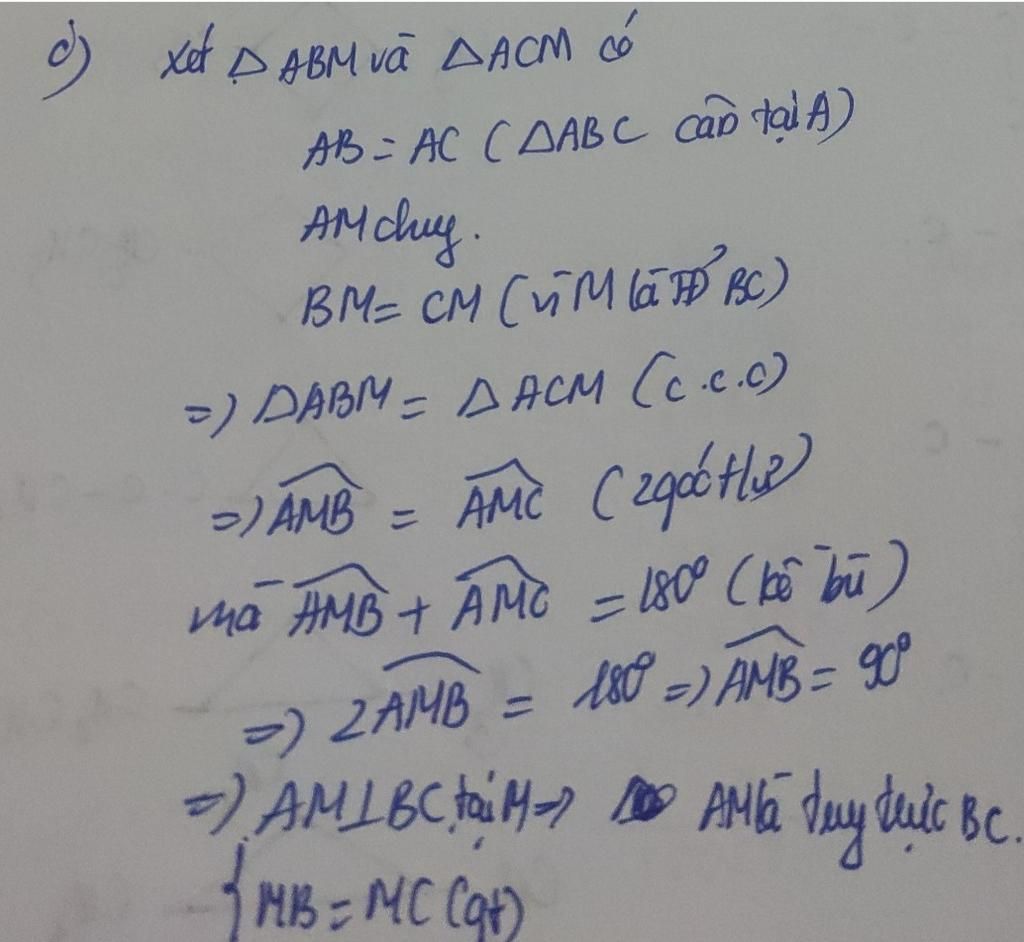 c) xét △ABM và △ACM có
AB = AC (△ABC cân tại A)
AM chug.
BM = CM (vì M là TĐ BC)
=> △ABM = △ACM (c.c.c)
=> \widehat{AMB} = \widehat{AMC} (2 góc t/ư)
mà \widehat{AMB} + \widehat{AMC} = 180° (kề bù)
=> 2\widehat{AMB} = 180° => \widehat{AMB} = 90°
=> AM⊥BC tại M => AM là trug trực BC.
{ MB = MC (gt)